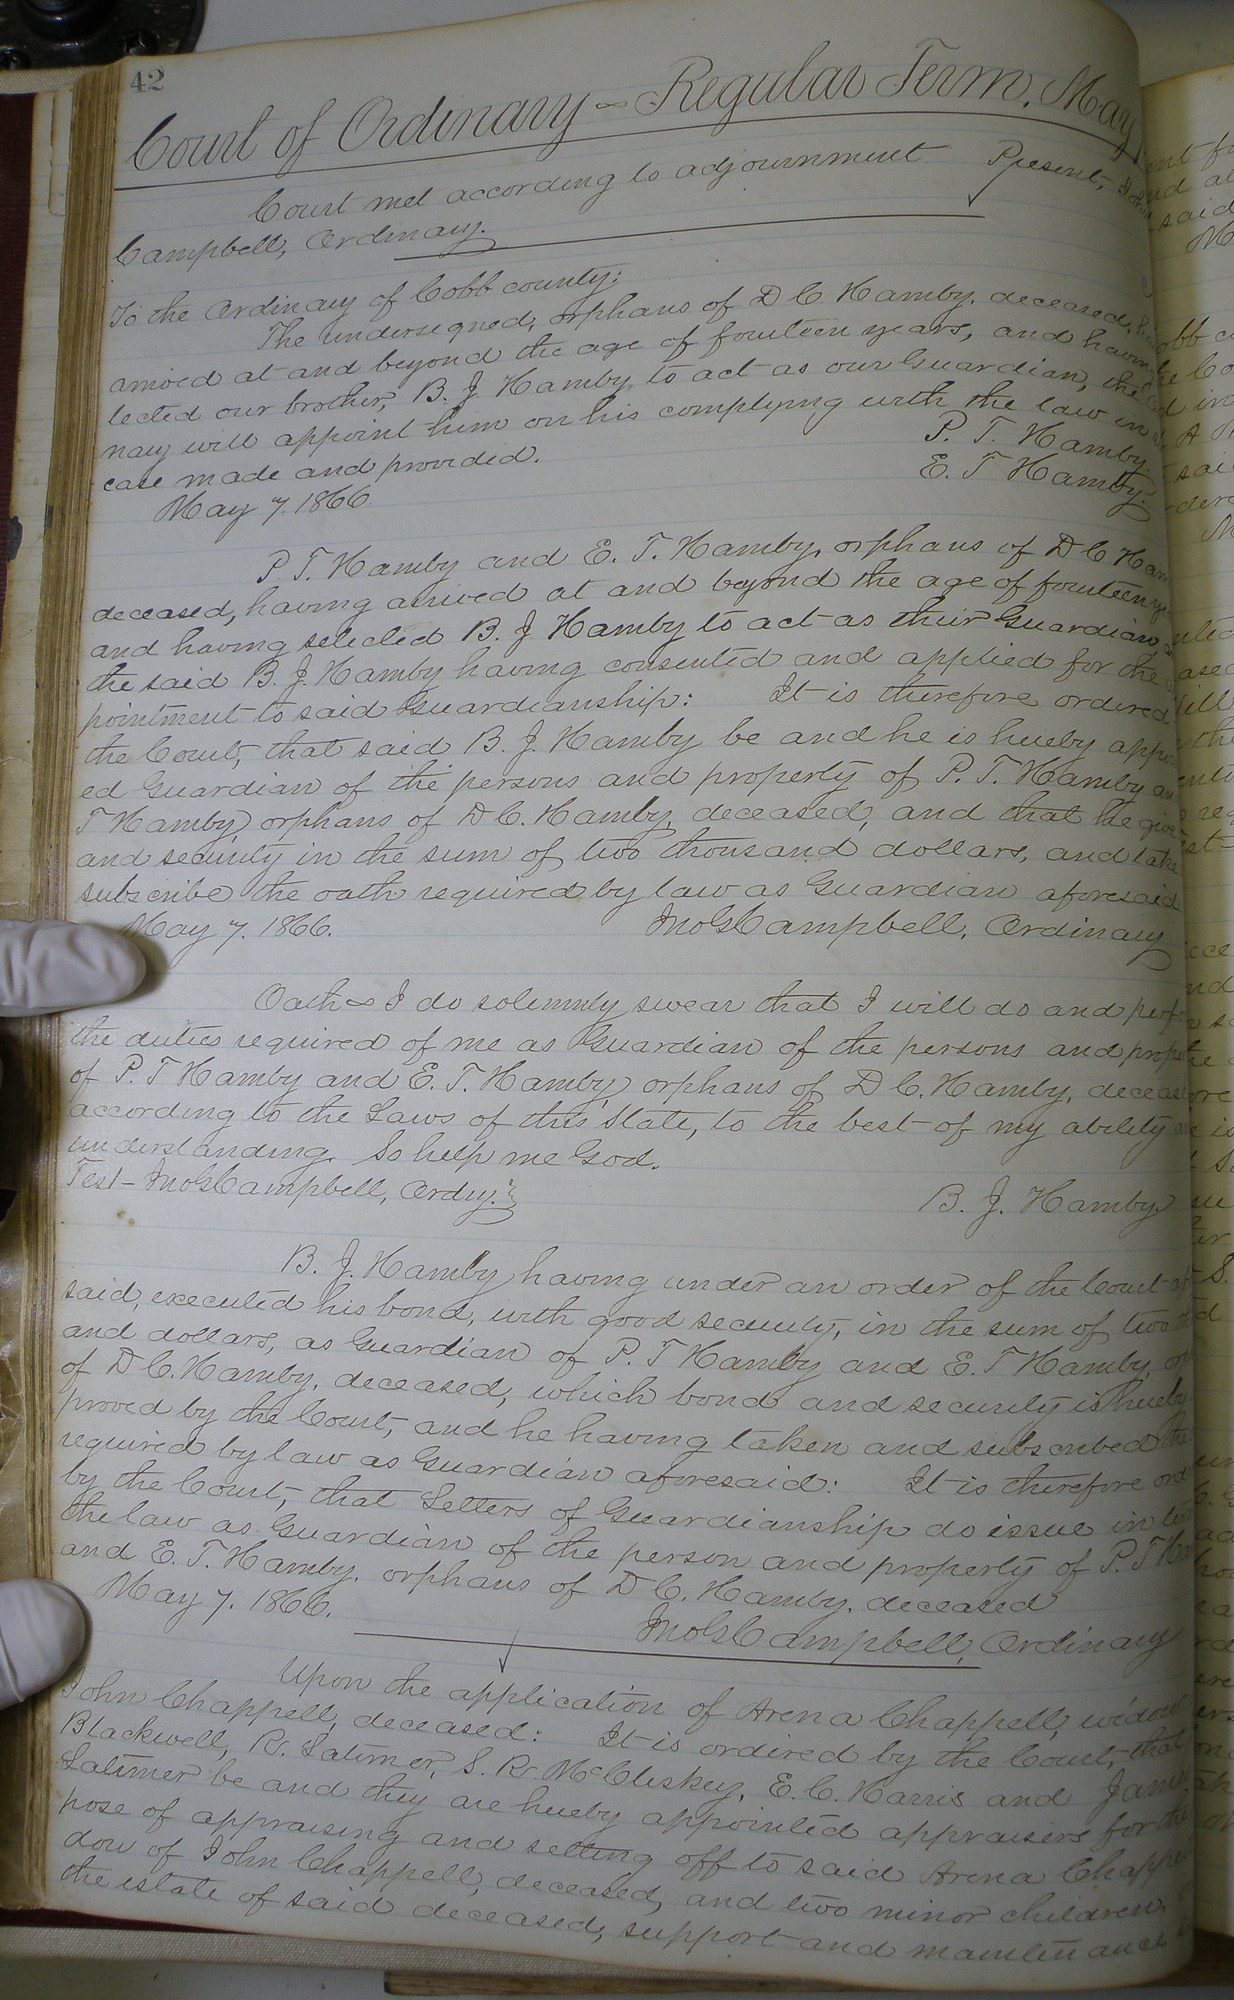 42
Court of Ordinary ~ Regular Term, May
Court met according to adjournment Present, John
Campbell, Ordinary.
To the Ordinary of Cobb county;
The undersigned, orphans of D C Hamby, deceased,
arrived at and beyond the age of fourteen years, and having
lected our brother, B. J. Hamby to act as our Guardian, the
nary will appoint him on his complying with the law in
case made and provided. P. T. Hamby.
E. T Hamby.
May 7. 1866
P T. Hamby and E. T. Hamby, orphans of D C Ham
deceased, having arrived at and beyond the age of fourteen ye
and having selected B. J Hamby to act as their Guardian,
the said B. J. Hamby having consented and applied for the
pointment to said Guardianship: It is therefore ordered
the Court, that said B. J. Hamby be and he is hereby appoi
ed Guardian of the persons and property of P. T. Hamby an
T Hamby, orphans of D C. Hamby, deceased, and that he give
and security in the sum of two thousand dollars, and take
subscribe the oath required by law as Guardian aforesaid
May 7. 1866. Jno G Campbell, Ordinary
Oath ~ I do solemnly swear that I will do and perf-
the duties required of me as Guardian of the persons and prope
of P. T Hamby and E. T. Hamby, orphans of D C. Hamby, deceas
according to the Laws of this State, to the best of my ability
understanding. So help me God.
Test- Jno G Campbell, Ordny. B. J. Hamby.
B. J. Hamby having under an order of the Court af
said, executed his bond, with good security, in the sum of two
and dollars, as Guardian of P. T Hamby and E. T Hamby, or
of D C. Hamby, deceased, which bond and security is hereby
proved by the Court, and he having taken and subscribed the
required by law as Guardian aforesaid: It is therefore ord
by the Court, that Letters of Guardianship do issue in
the law as Guardian of the person and property of P. T Ha
and E. T. Hamby, orphans of D C. Hamby, deceased
May 7. 1866. Jno G Campbell, Ordinary
Upon the application of Arena Chappell, widow
John Chappell, deceased: It is ordered by the Court, that
Blackwell, R. Latimer, S. R. McCleskey, E. C. Harris and James
Latimer be and they are hereby appointed appraisers for the
pose of appraising and setting off to said Arena Chappe
dow of John Chappell, deceased, and two minor children,
the estate of said deceased, support and maintenance